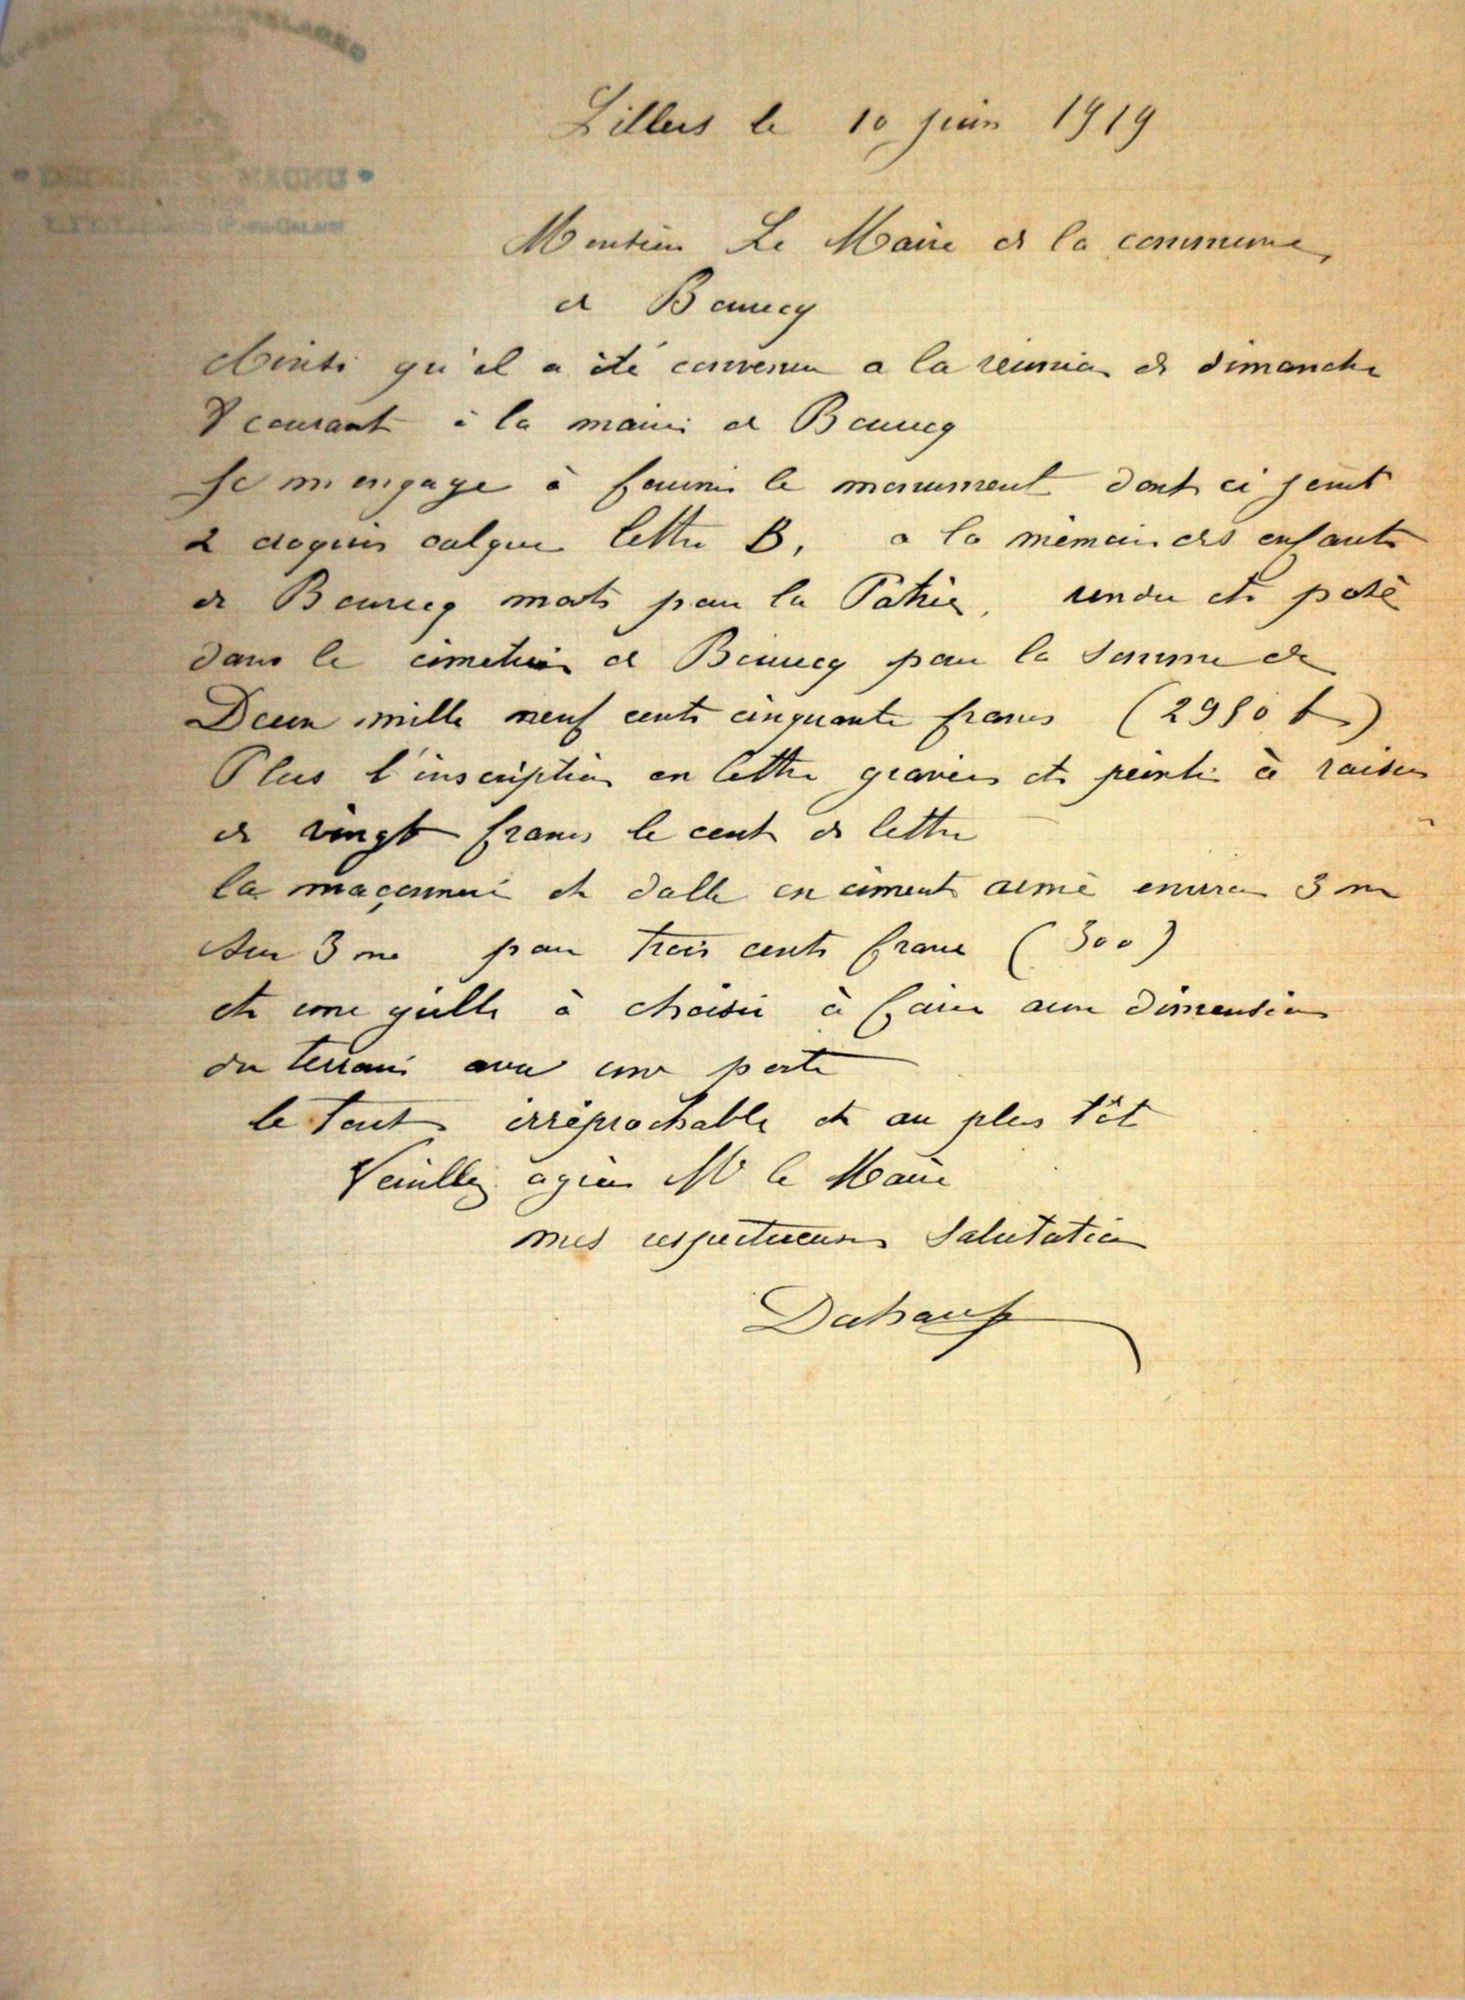 MACHU
LILLERS (Pas-de-Calais)
Lillers le 10 juin 1919
Monsieur Le Maire de la commune,
de Bourecq
Ainsi qu'il a été convenu a la réunion de dimanche
8 courant à la mairie de Bourecq
Je m'engage à fournir le monument dont ci joint
2 croquis calque lettre B, a la mémoire des enfants
de Bourecq morts pour la Patrie, rendu et posé
dans le cimetière de Bourecq pour la somme de
Deux mille neuf cents cinquante francs (2950 f)
Plus l'inscription en lettre gravées et peinte à raison
de vingt francs le cent de lettre
la maçonnerie et dalle en ciment armé environ 3 m
sur 3 m pour trois cents francs (300)
et une grille à choisir à faire aux dimensions
du terrain avec une porte
le tout irréprochable et au plus tôt
Veuillez agréer Mr le Maire
mes respectueuses salutation